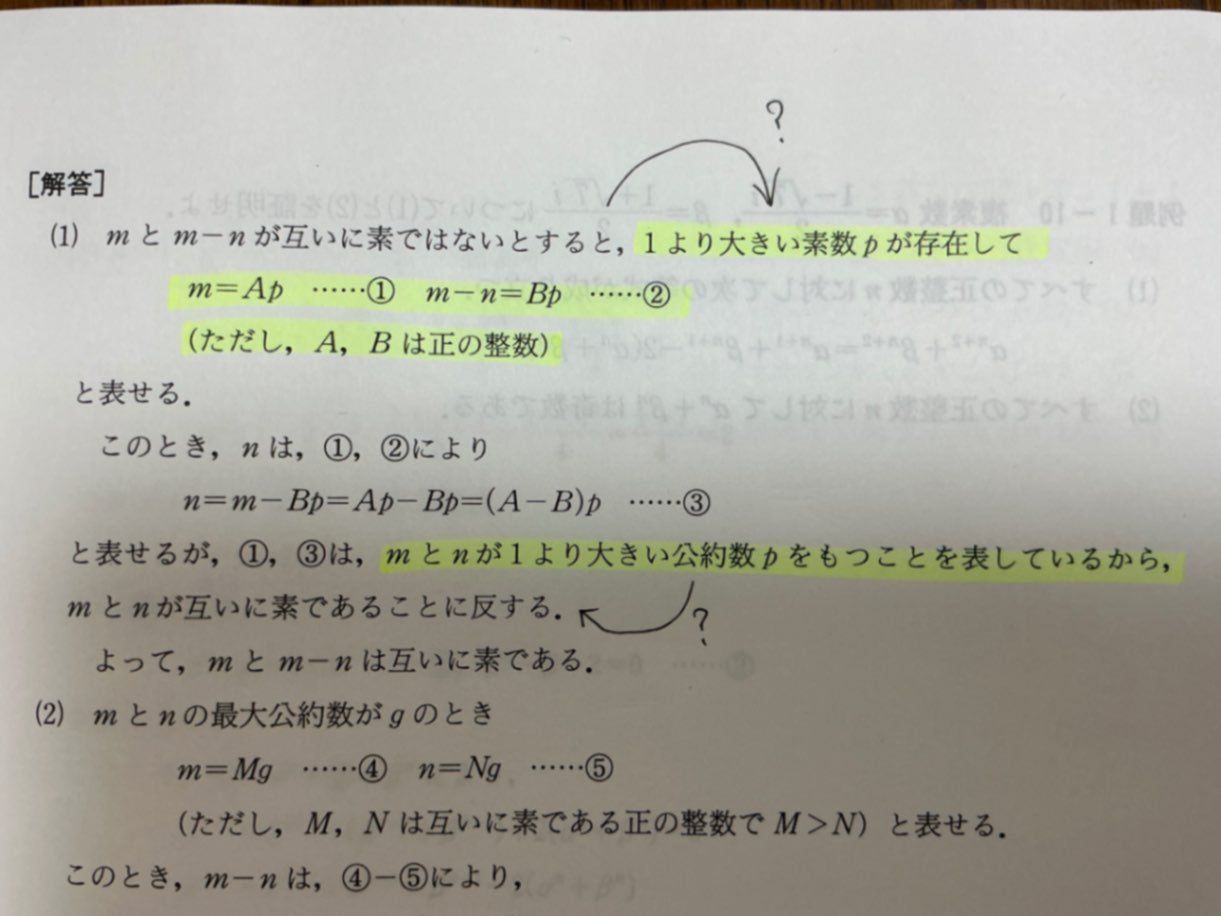 ?
[解答]
(1) mとm−nが互いに素ではないとすると，1より大きい素数pが存在して
m=Ap ……① m−n=Bp ……②
(ただし，A，Bは正の整数)
と表せる．
このとき，nは，①，②により
n=m−Bp=Ap−Bp=(A−B)p ……③
と表せるが，①，③は，mとnが1より大きい公約数pをもつことを表しているから，
mとnが互いに素であることに反する．
?
よって，mとm−nは互いに素である．
(2) mとnの最大公約数がgのとき
m=Mg ……④ n=Ng ……⑤
(ただし，M，Nは互いに素である正の整数でM>N) と表せる．
このとき，m−nは，④−⑤により，